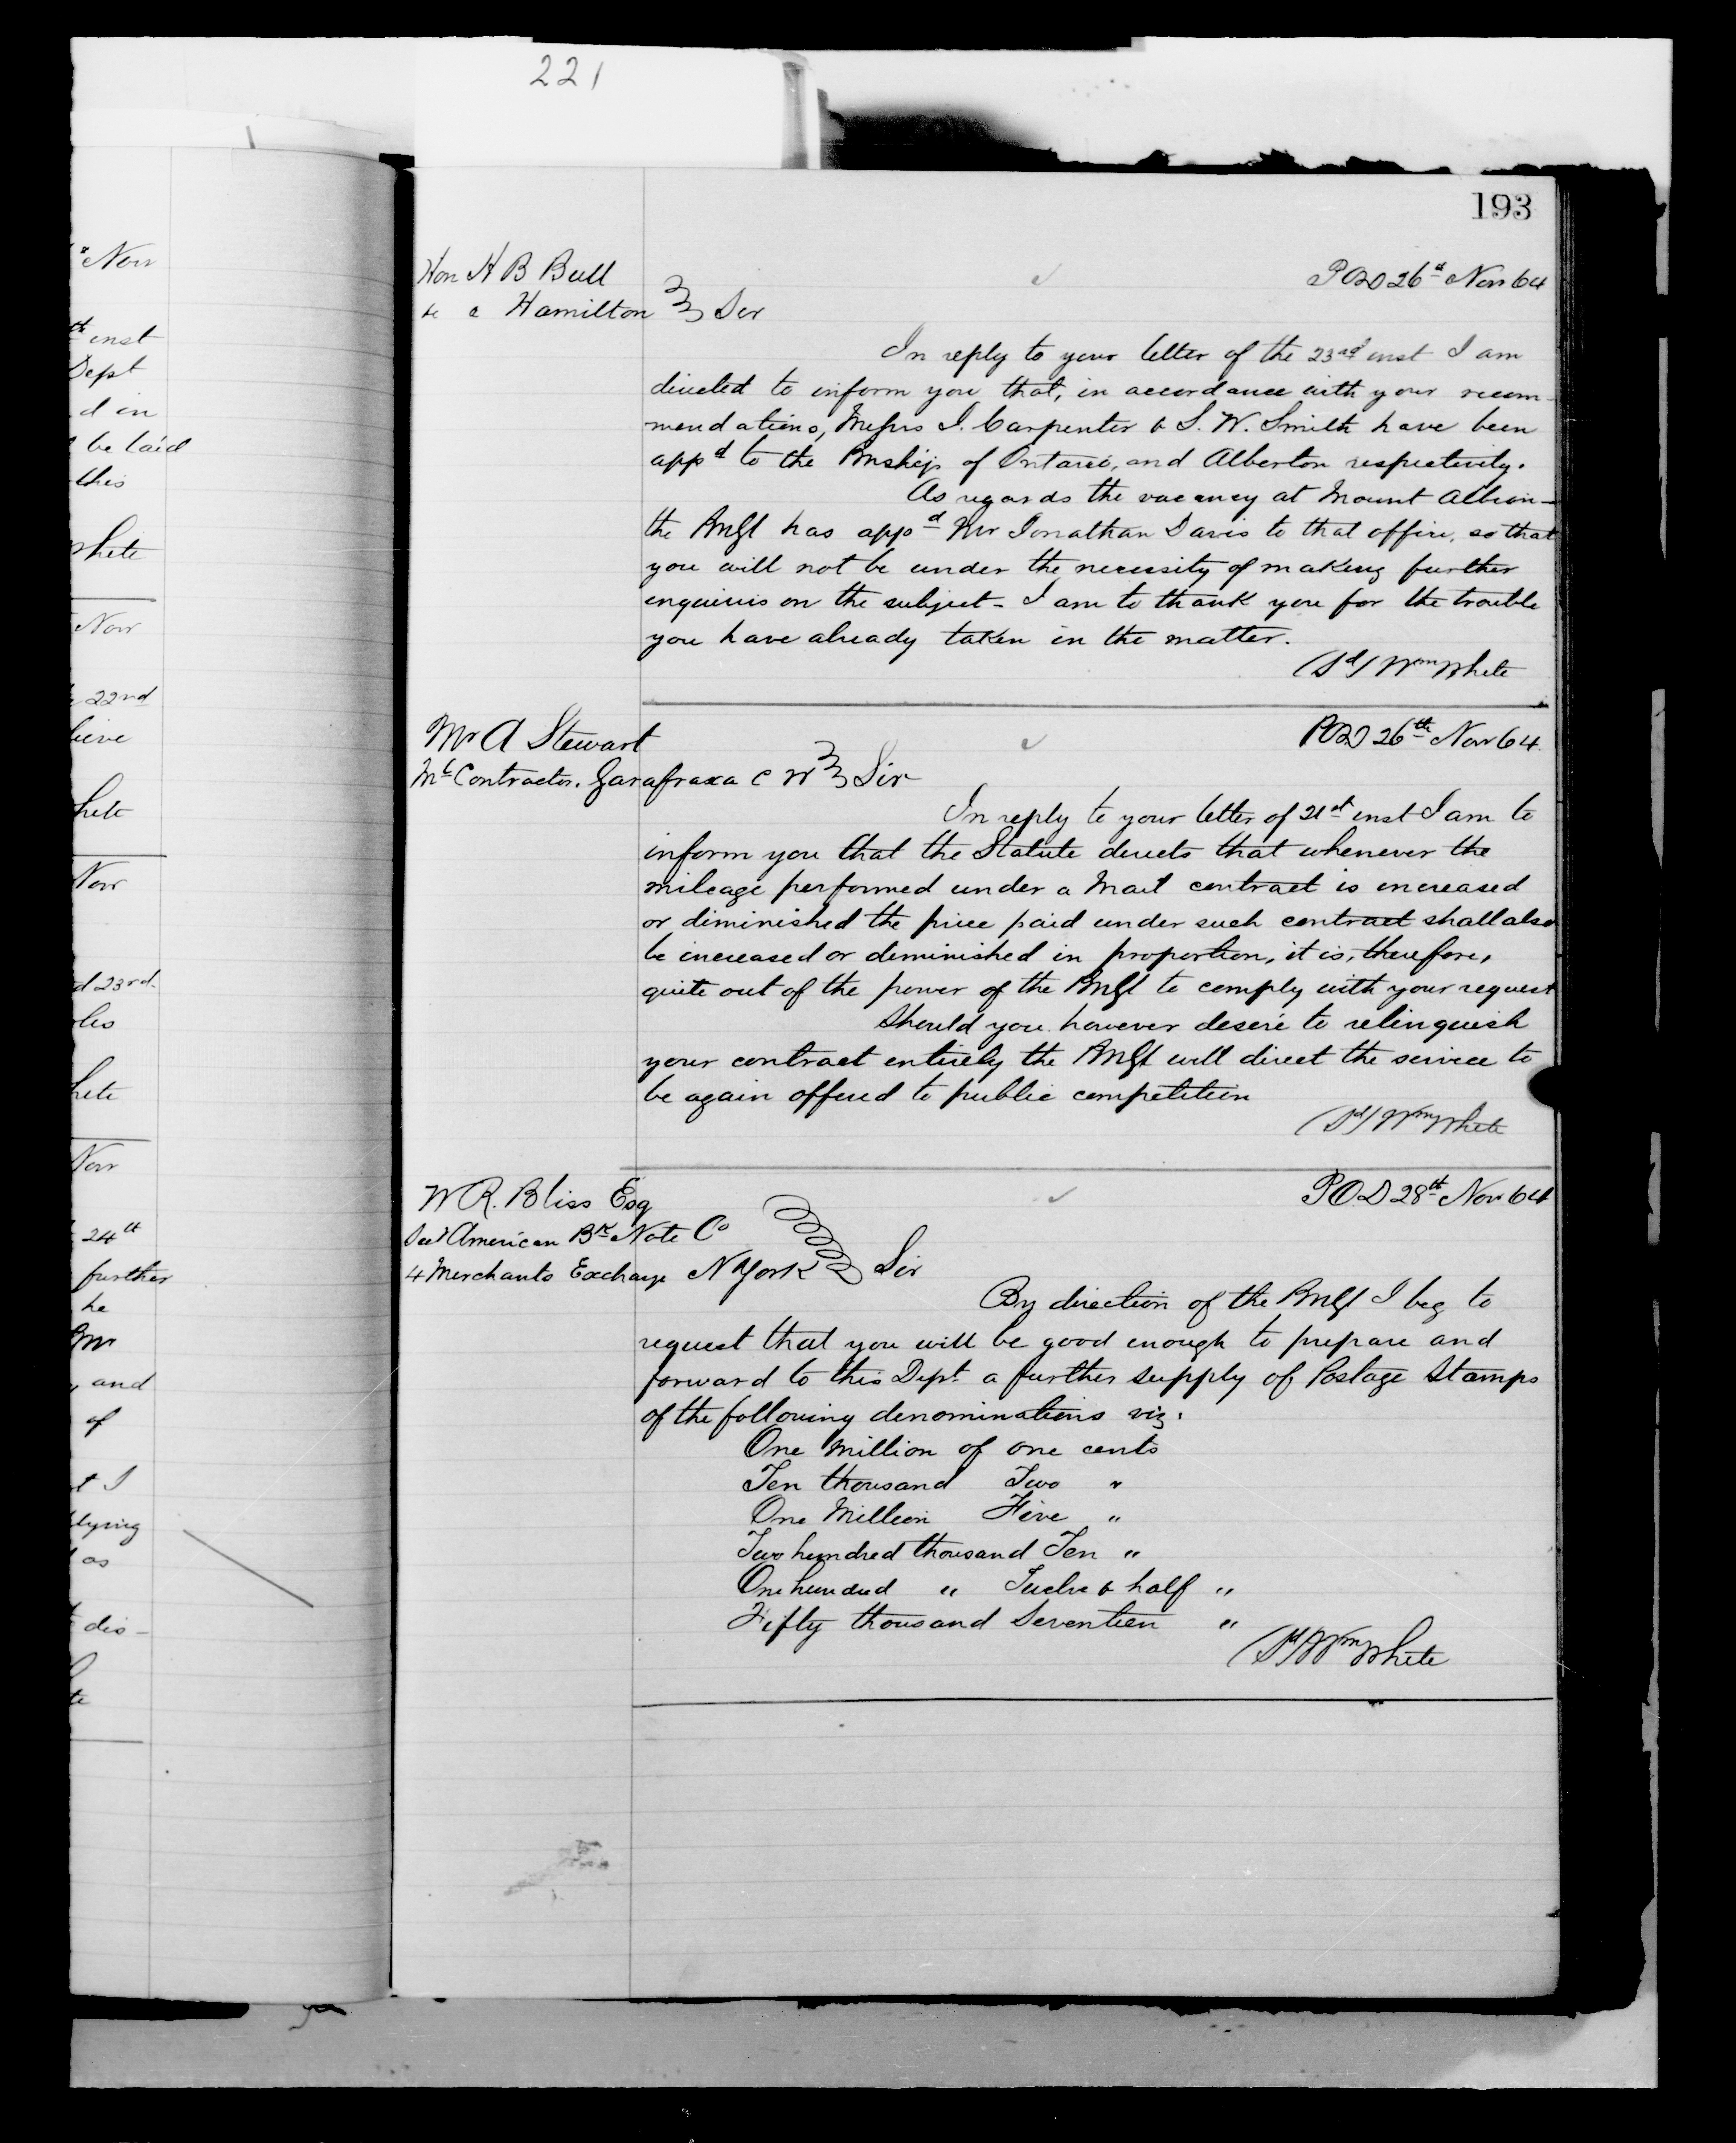 221
193
Hon H B Bull
&c &c Hamilton Sir
POD 26th Nov 64
In reply to your letter of the 23rd inst I am
directed to inform you that, in accordance with your recom-
mendations, Messrs I. Carpenter & S. W. Smith have been
appd to the Pmship of Ontario, and Alberton respectively.
As regards the vacancy at Mount Albion-
the PmGl has appd Mr Jonathan Davis to that office, so that
you will not be under the necessity of making further
enquiries on the subject - I am to thank you for the trouble
you have already taken in the matter.
(Sd) Wm White
Mr A Stewart
POD 26th Nov 64
Ml Contractor. Garafraxa C W Sir
In reply to your letter of 21st inst I am to
inform you that the Statute directs that whenever the
mileage performed under a Mail contract is increased
or diminished the price paid under such contract shall also
be increased or diminished in proportion, it is, therefore,
quite out of the power of the PmGl to comply with your request
Should you however desire to relinquish
your contract entirely the PmGl will direct the service to
be again offered to public competition
(Sd) Wm White
W R. Bliss Esq
POD 28th Nov 64
Secy American Bk Note Co
4 Merchants Exchange N York Sir
By direction of the PmGl I beg to
request that you will be good enough to prepare and
forward to this Dept a further supply of Postage Stamps
of the following denominations viz:
One Million of one cents
Ten thousand Two "
One Million Five "
Two hundred thousand Ten "
One hundred " Twelve & half "
Fifty thousand Seventeen "
(Sd) Wm White
Nov
th inst
Dept
d in
be laid
this
White
Nov
22nd
Nov
d 23rd
Nov
24th
further
he
Mr
and
of
t I
lying
as
dis-